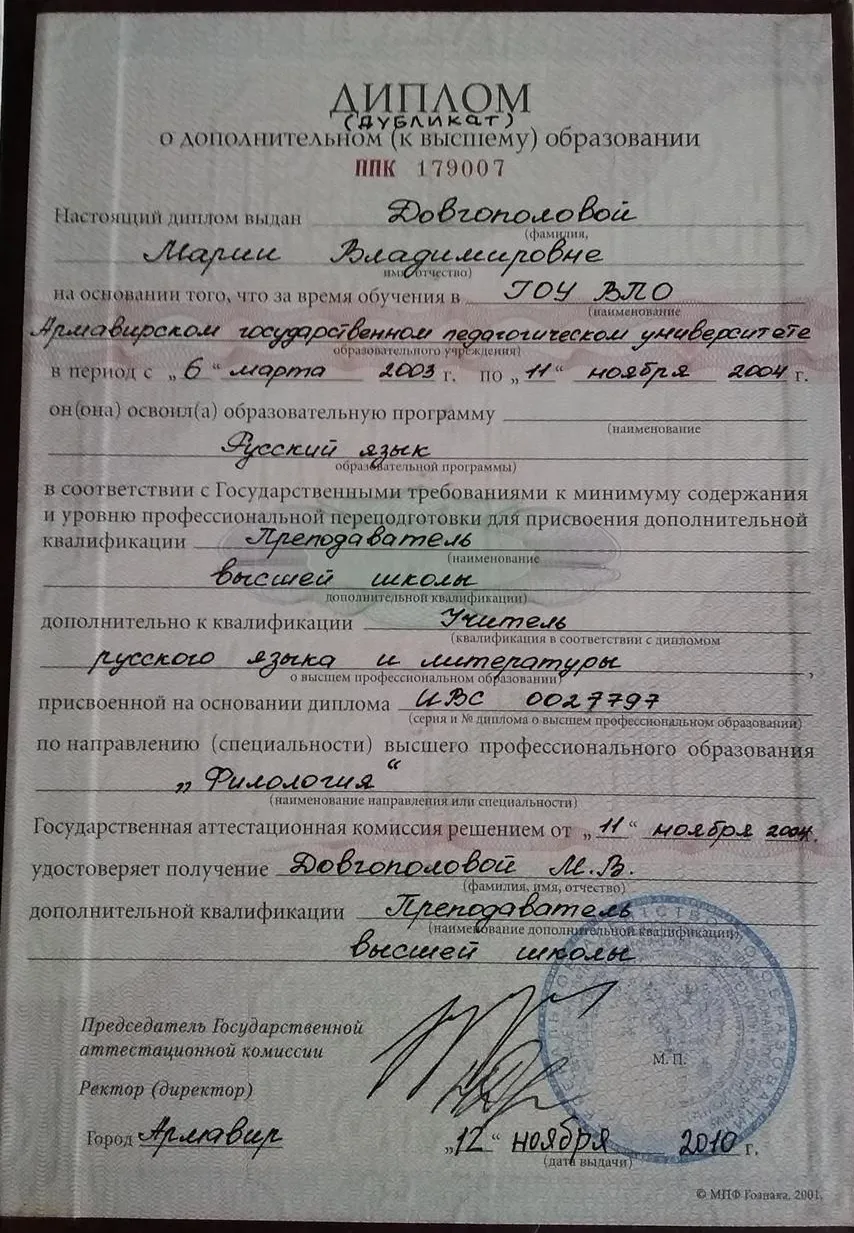 ДИПЛОМ
(ДУБЛИКАТ)
о дополнительном (к высшему) образовании
ППК 179007
Настоящий диплом выдан Довгополовой
(фамилия,
Марии Владимировне
имя, отчество)
на основании того, что за время обучения в ГОУ ВПО
(наименование
Армавирском государственном педагогическом университете
образовательного учреждения)
в период с „6“ марта 2003 г. по „11“ ноября 2004 г.
он(она) освоил(а) образовательную программу
(наименование
Русский язык
образовательной программы)
в соответствии с Государственными требованиями к минимуму содержания
и уровню профессиональной переподготовки для присвоения дополнительной
квалификации Преподаватель
(наименование
высшей школы
дополнительной квалификации)
дополнительно к квалификации Учитель
(квалификация в соответствии с дипломом
русского языка и литературы,
о высшем профессиональном образовании)
присвоенной на основании диплома ИВС 0027797
(серия и № диплома о высшем профессиональном образовании)
по направлению (специальности) высшего профессионального образования
„Филология“
(наименование направления или специальности)
Государственная аттестационная комиссия решением от „11“ ноября 2004.
удостоверяет получение Довгополовой М.В.
(фамилия, имя, отчество)
дополнительной квалификации Преподаватель
(наименование дополнительной квалификации)
высшей школы
Председатель Государственной
аттестационной комиссии
М. П.
Ректор (директор)
Город Армавир „12“ ноября 2010 г.
(дата выдачи)
© МПФ Гознака. 2001.